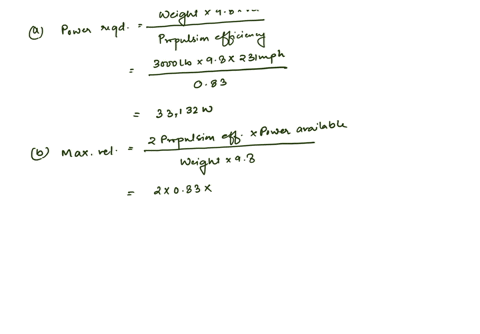 (a) Power reqd. = Weight × 9.8 ×
Propulsion efficiency
= 3000lb × 9.8 × 231mph
0.83
= 33,132 W
(b) Max. vel. = 2 Propulsion eff. × Power available
Weight × 9.8
= 2 × 0.83 ×